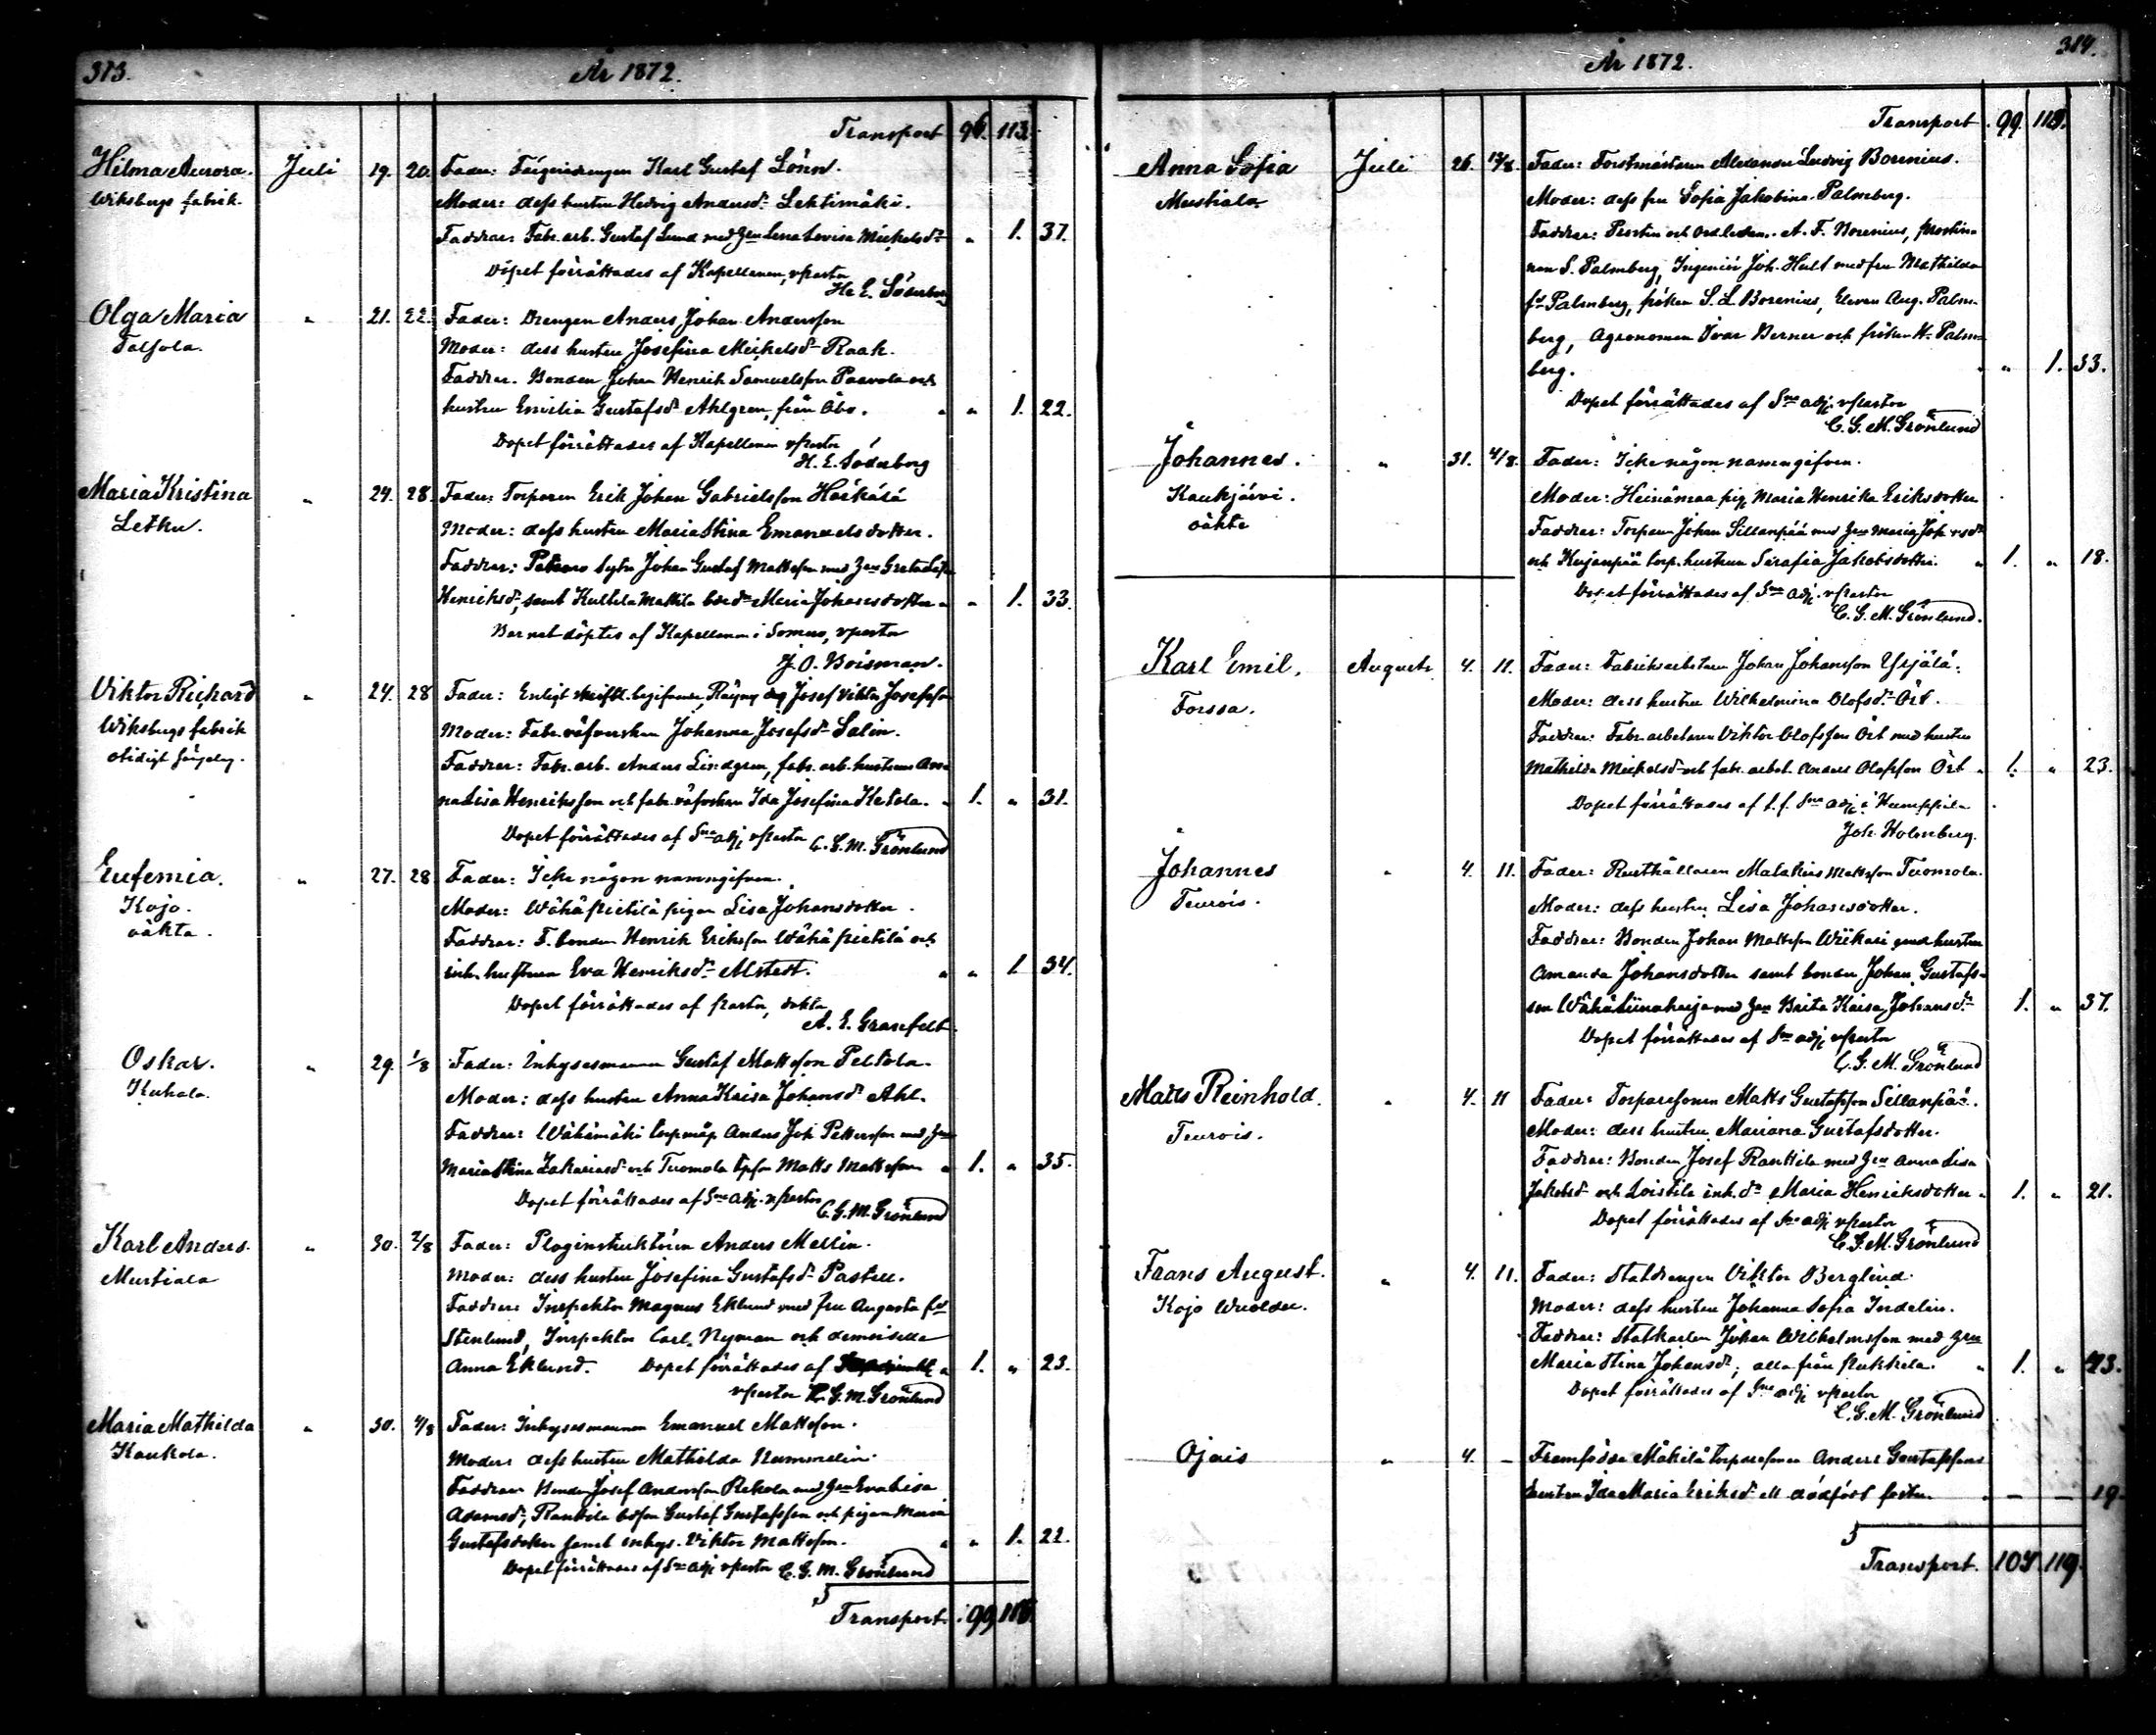 373.
År 1872.
Transport 96. 113.
Hilma Aurora. Juli 19. 20. Fader: Färgeridrengen Karl Gustaf Lönn.
Wiksbergs fabrik. Moder: dess hustru Hedvig Andersdr Lehtimäki.
Faddrar: Fabr. arb. Gustaf Lund med hru Lena Lovisa Mickelsdr " 1. 37.
Döpet förrättades af Kapellanen, vpastor
H. E. Söderborg
Olga Maria " 21. 22. Fader: Drengen Anders Johan Andersson
Talsola. Moder: dess hustru Josefina Mickelsdr Raak.
Faddrar. Bonden Johan Henrik Samuelsson Paavola och
hustru Emilia Gustafsdr Ahlgren, från Åbo. " " 1. 22.
Dopet förrättades af Kapellanen vpastor
H. E. Söderborg
Maria Kristina " 24. 28. Fader: Torparen Erik Johan Gabrielsson Härkälä
Letku. Moder: dess hustru Maria Stina Emanuelsdotter.
Faddrar: Johan Gustaf Mattsson med hru Greta Lisa
Henriksdr, samt Kultela Mattila Maria Johansdotter " " 1. 33.
Barnet döptes af Kapellanen i Somero, vpastor
J. O. Boisman.
Viktor Richard " 24. 28 Fader: Enligt skriftl. begifvande, Josef Viktor Josefsson
Wiksbergs fabrik Moder: Fabr. väfverskan Johanna Josefsdr Salin.
otidigt sängelag. Faddrar: Fabr. arb. Anders Lindgren, fabr. arb. hustrun An-
na Lisa Henriksson och fabr. väfverskan Ida Josefina Ketola. " 1. " 31.
Dopet förrättades af Sne adj. vpastor C. G. M. Grönlund
Eufemia. " 27. 28 Fader: Icke någon namngifven.
Kojo. Moder: Wähäpietilä pigan Lisa Johansdotter.
oäkta. Faddrar: F. bonden Henrik Eriksson Wähäpietilä och
inh. hustrun Eva Henriksdr Alstedt. " " 1 34.
Dopet förrättades af pastor, doktor
A. E. Granfelt
Oskar. " 29. 1/8 Fader: Inhysesmannen Gustaf Mattsson Peltola.
Kuhala. Moder: dess hustru Anna Kaisa Johansdr Ahl.
Faddrar: Wähämäki torpmåg Anders Joh. Pettersson med hru
Maria Stina Zakariasdr och Tuomola Matts Mattsson " 1. " 35.
Dopet förrättades af Sne adj. vpastor C. G. M. Grönlund
Karl Anders. " 30. 2/8 Fader: Ploginstruktören Anders Mellin.
Mustiala Moder: dess hustru Josefina Gustafsdr Pastell.
Faddrar: Inspektor Magnus Eklund med fru Augusta fd
Stenlund, Inspektor Carl Nyman och demoiselle
Anna Eklund. Dopet förrättades af " 1. " 23.
vpastor C. G. M. Grönlund
Maria Mathilda " 30. 4/8 Fader: Inhysesmannen Emanuel Mattsson.
Kaukola. Moder: dess hustru Mathilda Nummelin.
Faddrar: Bonden Josef Andersson Rekola med hru Eva Lisa
Adamsdr, Rankila Gustaf Gustafsson och pigan Maria
Gustafsdotter samt inhys. Viktor Mattsson. " " 1. 22.
Dopet förrättades af Sne adj. vpastor C. G. M. Grönlund
Transport. 99. 118.
374.
År 1872.
Transport. 99. 118.
Anna Sofia Juli 26. 12/8. Fader: Forstmästaren Alexander Ludvig Borenius.
Mustiala Moder: dess fru Sofia Jakobina Palmberg.
Faddrar: Prosten och Ordleden. A. F. Borenius, prostin-
nan S. Palmberg, Ingeniör Joh. Hult med fru Mathilda
fd Palmberg, fröken S. L. Borenius, Eleven Aug. Palm-
berg, Agronomen Ivar Berner och fröken H. Palm-
berg. " " 1. 33.
Dopet förrättades af Sne adj. vpastor
C. G. M. Grönlund
Johannes. " 31. 4/8. Fader: Icke någon namngifven.
Kaukjärvi. Moder: Heinämaa pig. Maria Henrika Eriksdotter
oäkta Faddrar: Torparen Johan Sillanpää med hru Maria Joh.sdr
och Kujanpää torp. hustrun Serafia Jakobsdotter. " 1. " 18.
Dopet förrättades af Sne adj. vpastor
C. G. M. Grönlund.
Karl Emil. Augusti 4. 11. Fader: Fabriksarbetaren Johan Johansson Ypjälä.
Forssa. Moder: dess hustru Wilhelmina Olofsdr Ört.
Faddrar: Fabr. arbetaren Viktor Olofsson Ört med hustru
Mathilda Mickelsdr och fabr. arbet. Anders Olofsson Ört " 1. " 23.
Dopet förrättades af t. f. Sne adj. i Humppila
Joh. Holmberg.
Johannes " 4. 11. Fader: Rusthållaren Malakias Mattsson Tuomola.
Teurois. Moder: dess hustru Lisa Johansdotter.
Faddrar: Bonden Johan Mattsson Wiikari med hustru
Amanda Johansdotter samt bonden Johan Gustafs-
son med hru Brita Kaisa Johansdr 1. " 37.
Dopet förrättades af Sne adj. vpastor
C. G. M. Grönlund
Matts Reinhold. " 4. 11 Fader: Torparesonen Matts Gustafsson Sillanpää.
Teurois. Moder: dess hustru Mariana Gustafsdotter.
Faddrar: Bonden Josef Ranttila med hru Anna Lisa
Jakobsdr och Loistila inh. dr Maria Henriksdotter " 1. " 21.
Dopet förrättades af Sne adj. vpastor
C. G. M. Grönlund
Frans August. " 4. 11. Fader: Statdrengen Viktor Berglund.
Kojo Moder: dess hustru Johanna Sofia Indelin.
Faddrar: Statkarlen Johan Wilhelmsson med hru
Maria Stina Johansdr, alla från " 1. " 43.
Dopet förrättades af Sne adj. vpastor
C. G. M. Grönlund
Ojais " 4. - Framfödde Mäkilä torparesonen Anders Gustafssons
hustru Ida Maria Eriksdr ett dödfödt foster. - - 19.
Transport. 104. 119.